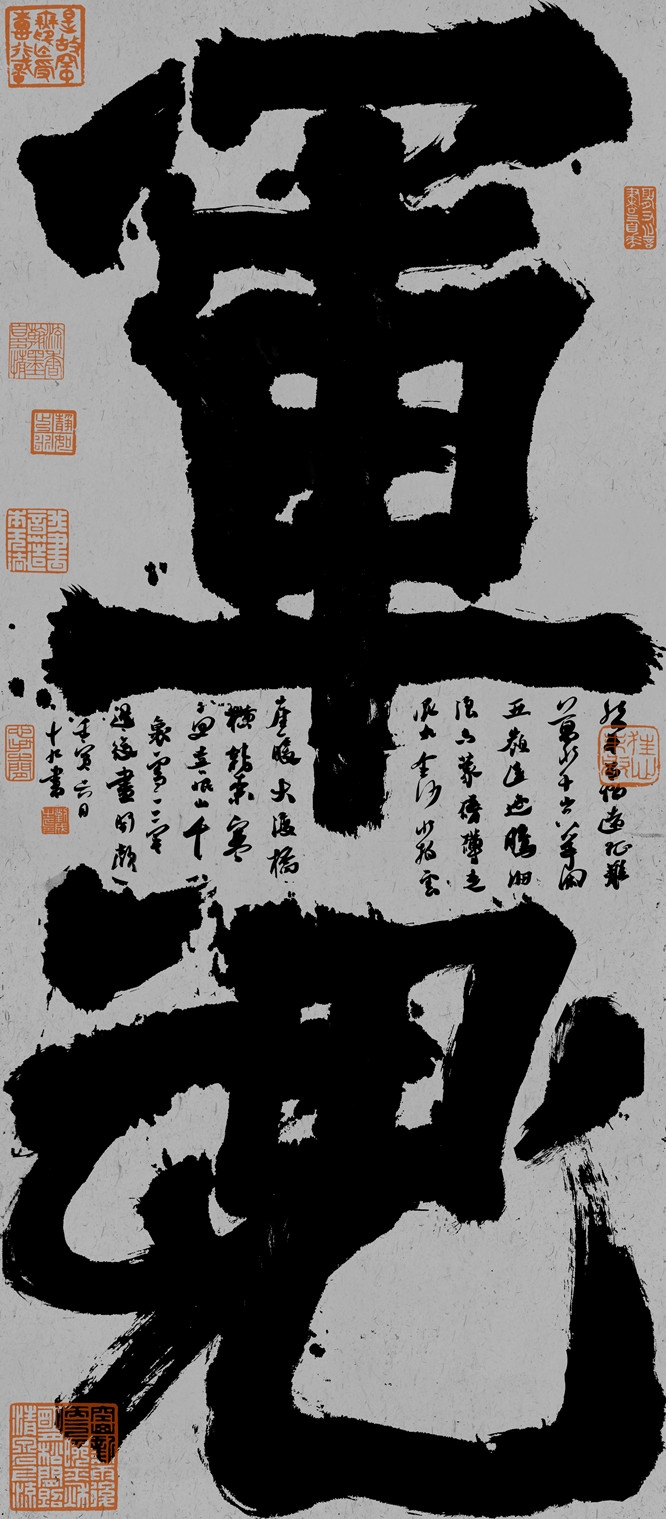 軍魂
紅軍不怕遠征難
萬水千山只等閑
五嶺逶迤騰細
浪烏蒙磅礴走
泥丸金沙水拍雲
崖暖大渡橋
橫鐵索寒
更喜岷山千
里雪三軍
過後盡開顏
壬寅六日
十九書